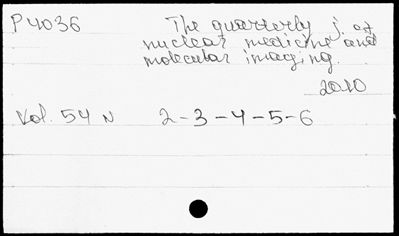 P4036 The quarterly j. of
nuclear medicine and
molecular imaging.
2010
Vol. 54 N 2-3-4-5-6